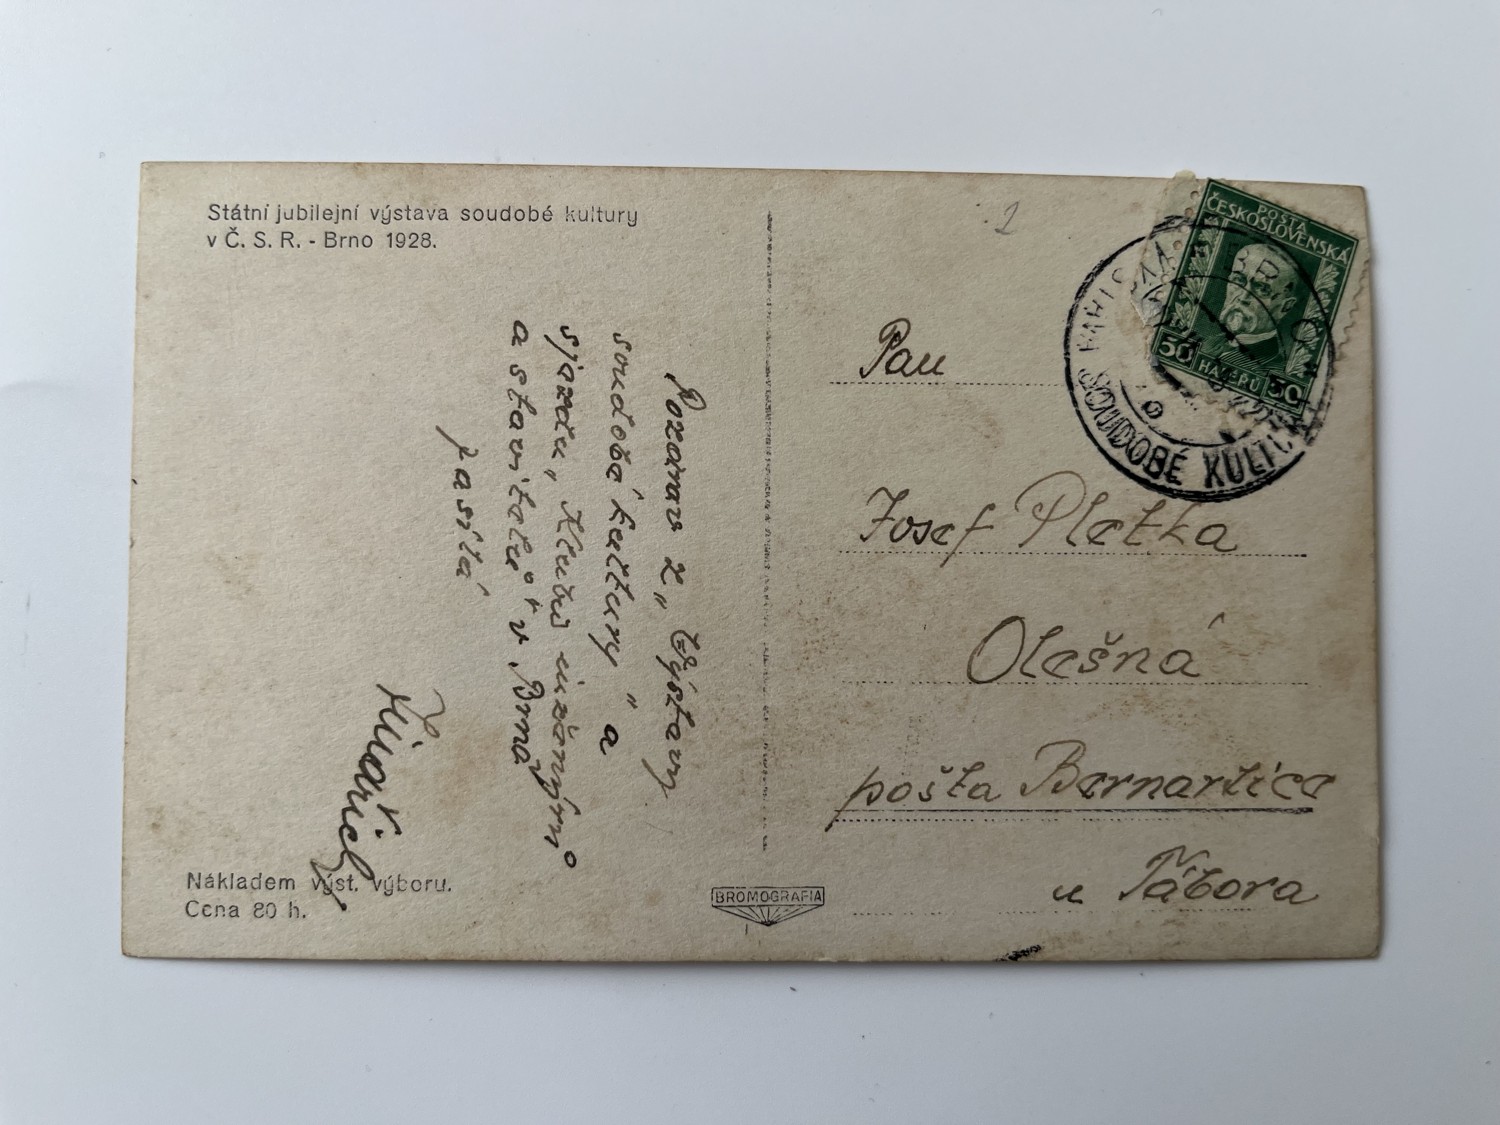 Státní jubilejní výstava soudobé kultury
v Č. S. R. - Brno 1928.
Pozdrav z „Výstavy
soudobé kultury" a
sjezdu „Klubů inženýrů
a stavitelů" v Brně
zasílá
Nákladem výst. výboru.
Cena 80 h.
BROMOGRAFIA
1
POŠTA
ČESKOSLOVENSKÁ
50 HALÉŘŮ 50
BRNO
SOUDOBÉ KULTURY
Pan
Josef Pletka
Olešná
pošta Bernartice
u Tábora